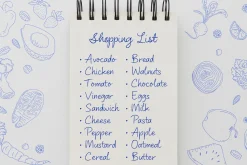 Shopping List
· Avocado · Bread
· Chicken · Walnuts
· Tomato · Chocolate
· Vinegar · Eggs
· Sandwich · Milk
· Cheese · Pasta
· Pepper · Apple
· Mustard · Oatmeal
· Cereal · Butter